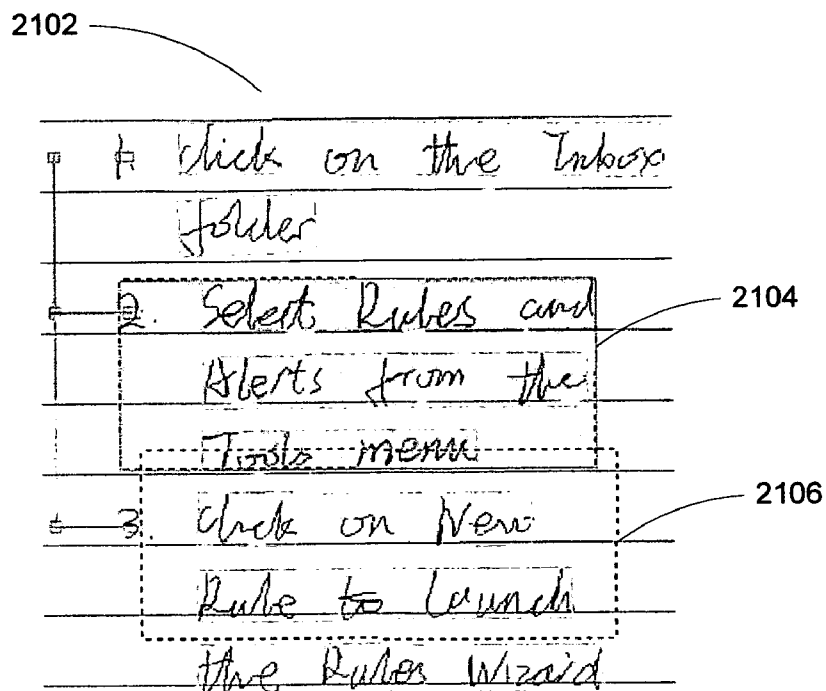 2102
1. Click on the Inbox
folder
2. Select Rules and
Alerts from the
Tools menu
2104
3. Click on New
Rule to launch
the Rules Wizard
2106